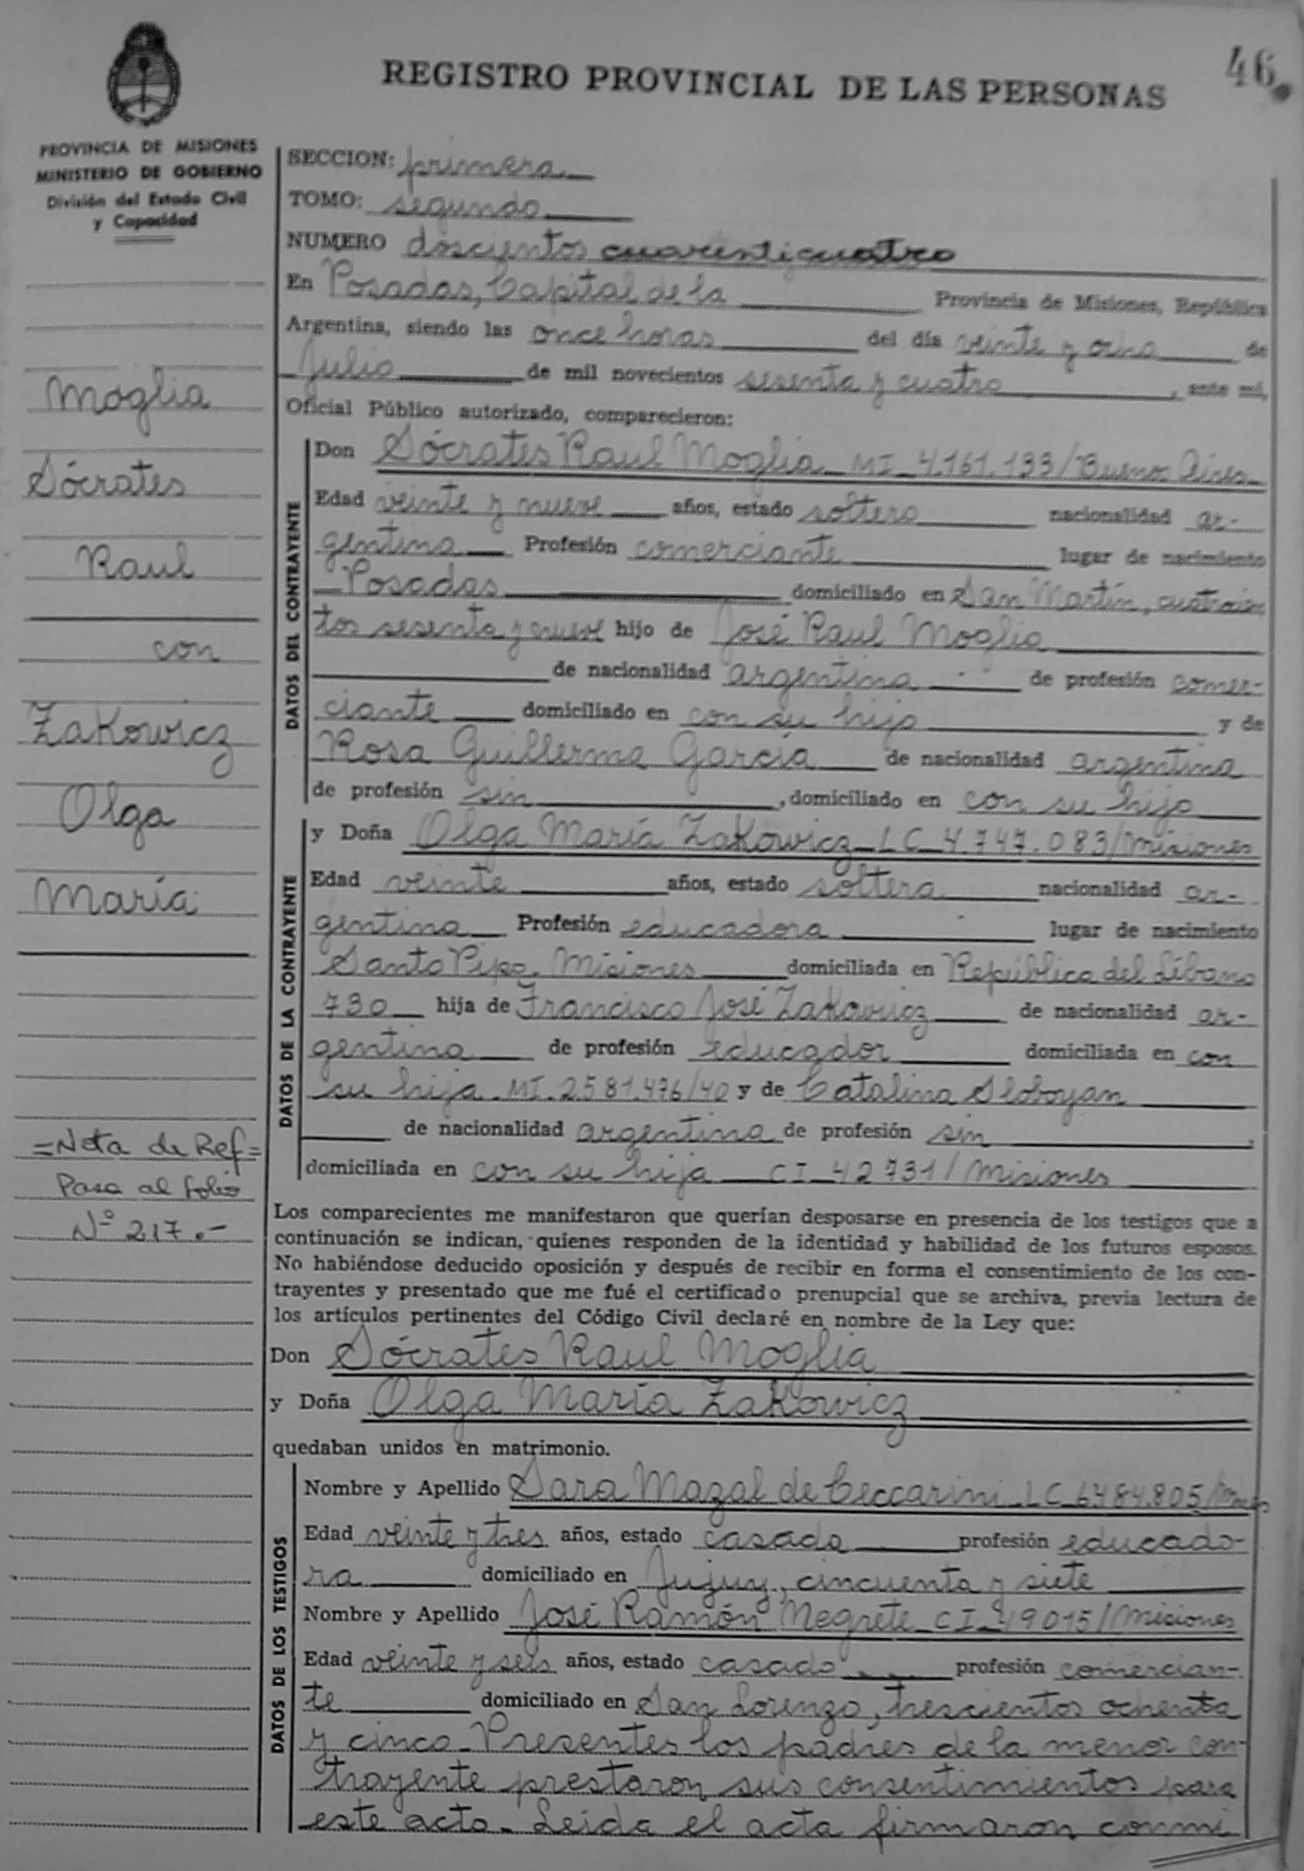 46
REGISTRO PROVINCIAL DE LAS PERSONAS
PROVINCIA DE MISIONES
MINISTERIO DE GOBIERNO
División del Estado Civil
y Capacidad
Moglia
Sócrates
Raul
con
Zakowicz
Olga
María
=Nota de Ref=
Pasa al folio
Nº 217.-
SECCION: primera
TOMO: segundo
NUMERO doscientos cuarenticuatro
En Posadas, Capital de la Provincia de Misiones, República
Argentina, siendo las once horas del día veinte y ocho de
Julio de mil novecientos sesenta y cuatro, ante mí,
Oficial Público autorizado, comparecieron:
DATOS DEL CONTRAYENTE
Don Sócrates Raul Moglia_MI_4.161.133/Buenos Aires
Edad veinte y nueve años, estado soltero nacionalidad ar-
gentina Profesión comerciante lugar de nacimiento
Posadas domiciliado en San Martín, cuatrocien
tos sesenta y nueve hijo de José Raul Moglia
de nacionalidad argentina de profesión comer-
ciante domiciliado en con su hijo y de
Rosa Guillerma García de nacionalidad argentina
de profesión sin, domiciliado en con su hijo
DATOS DE LA CONTRAYENTE
y Doña Olga María Zakowicz_LC_4.747.083/Misiones
Edad veinte años, estado soltera nacionalidad ar-
gentina Profesión educadora lugar de nacimiento
Santo Pipo. Misiones domiciliada en República del Líbano
730 hija de Francisco José Zakowicz de nacionalidad ar-
gentina de profesión educador domiciliada en con
su hija_MI.2581.476/40 y de Catalina Sloboyan
de nacionalidad argentina de profesión sin,
domiciliada en con su hija CI_42731/Misiones
Los comparecientes me manifestaron que querían desposarse en presencia de los testigos que a
continuación se indican, quienes responden de la identidad y habilidad de los futuros esposos.
No habiéndose deducido oposición y después de recibir en forma el consentimiento de los con-
trayentes y presentado que me fué el certificado prenupcial que se archiva, previa lectura de
los artículos pertinentes del Código Civil declaré en nombre de la Ley que:
Don Sócrates Raul Moglia
y Doña Olga María Zakowicz
quedaban unidos en matrimonio.
DATOS DE LOS TESTIGOS
Nombre y Apellido Sara Mazal de Ceccarini_LC_6484.805/
Edad veinte y tres años, estado casada profesión educado-
ra domiciliado en Jujuy, cincuenta y siete
Nombre y Apellido José Ramón Negrete_CI_49015/Misiones
Edad veinte y seis años, estado casado profesión comercian-
te domiciliado en San Lorenzo, trescientos ochenta
y cinco_Presentes los padres de la menor con-
trayente prestaron sus consentimientos para
este acto_Leída el acta firmaron conmi